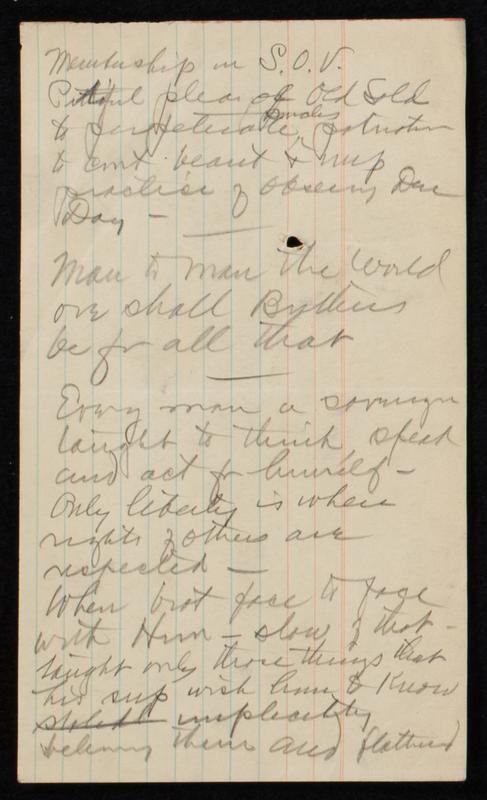 Membership in S.O.V.
Pitiful plea of Old Sold
to perpetuate, patriotism
to cont beaut &
practise of observing Dec
Day —
Man to Man the World
ore shall Brothers
be for all that
Every man a sovereign
taught to think, speak
and act for himself —
Only liberty is where
rights of others are
respected —
When brot face to face
with Him — slow of that —
taught only those things that
his sup wish him to know
implicitly
believing them and flattered